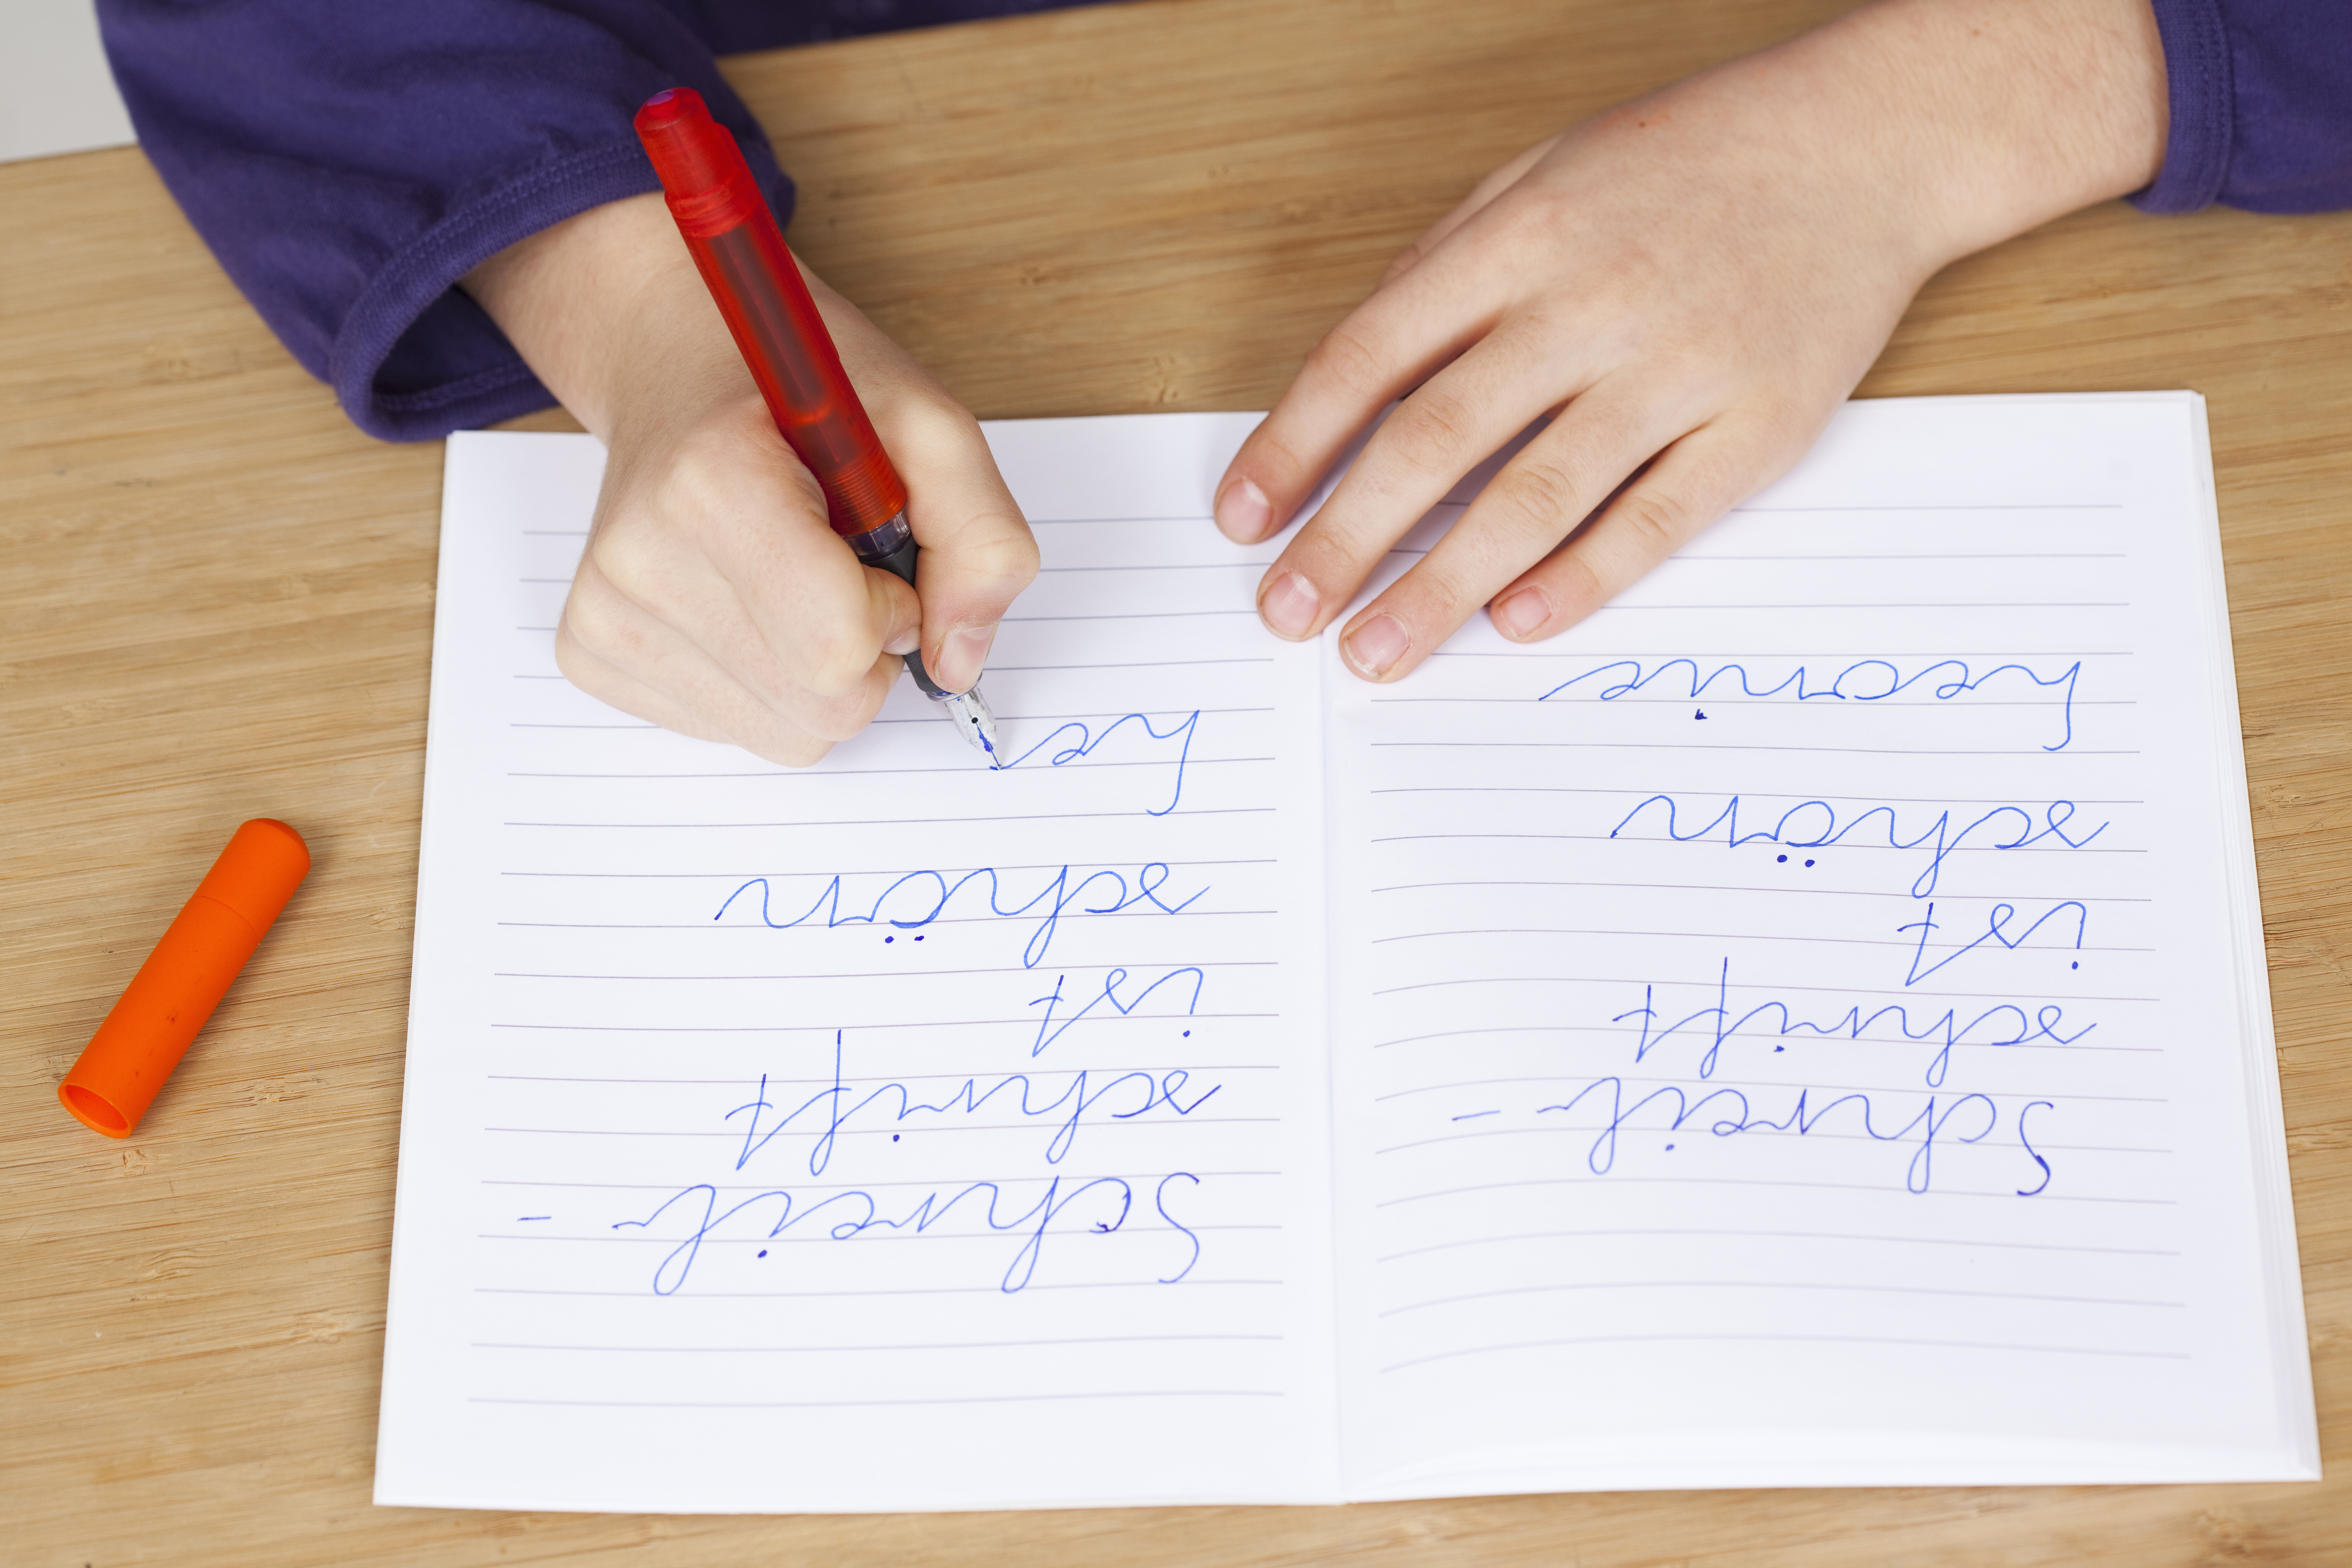 Schreib-
schrift
ist
schön
Leonie
Schreib-
schrift
ist
schön
Le